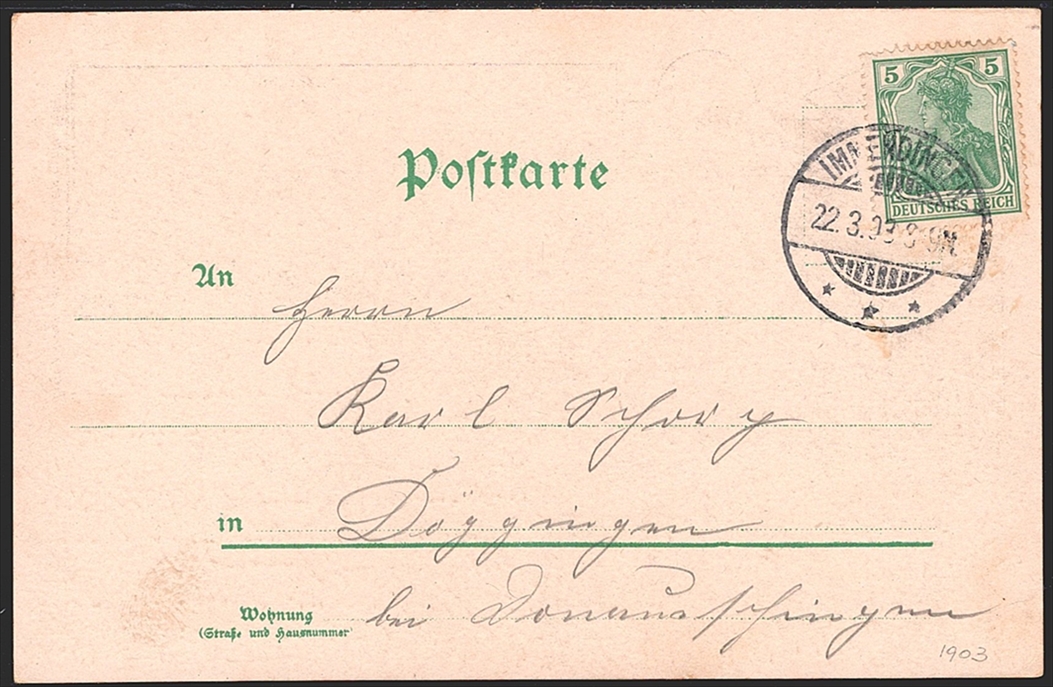 5 5
DEUTSCHES REICH
IMMENDINGEN
22.3.03 8-9N.
Postkarte
An
Herrn
Karl Schorp
in Döggingen
Wohnung
(Straße und Hausnummer
bei Donaueschingen
1903